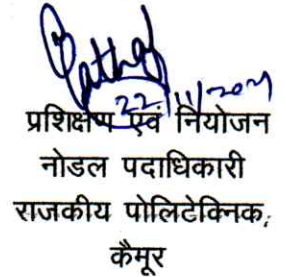 22/11/2021
प्रशिक्षण एवं नियोजन
नोडल पदाधिकारी
राजकीय पोलिटेक्निक,
कैमूर